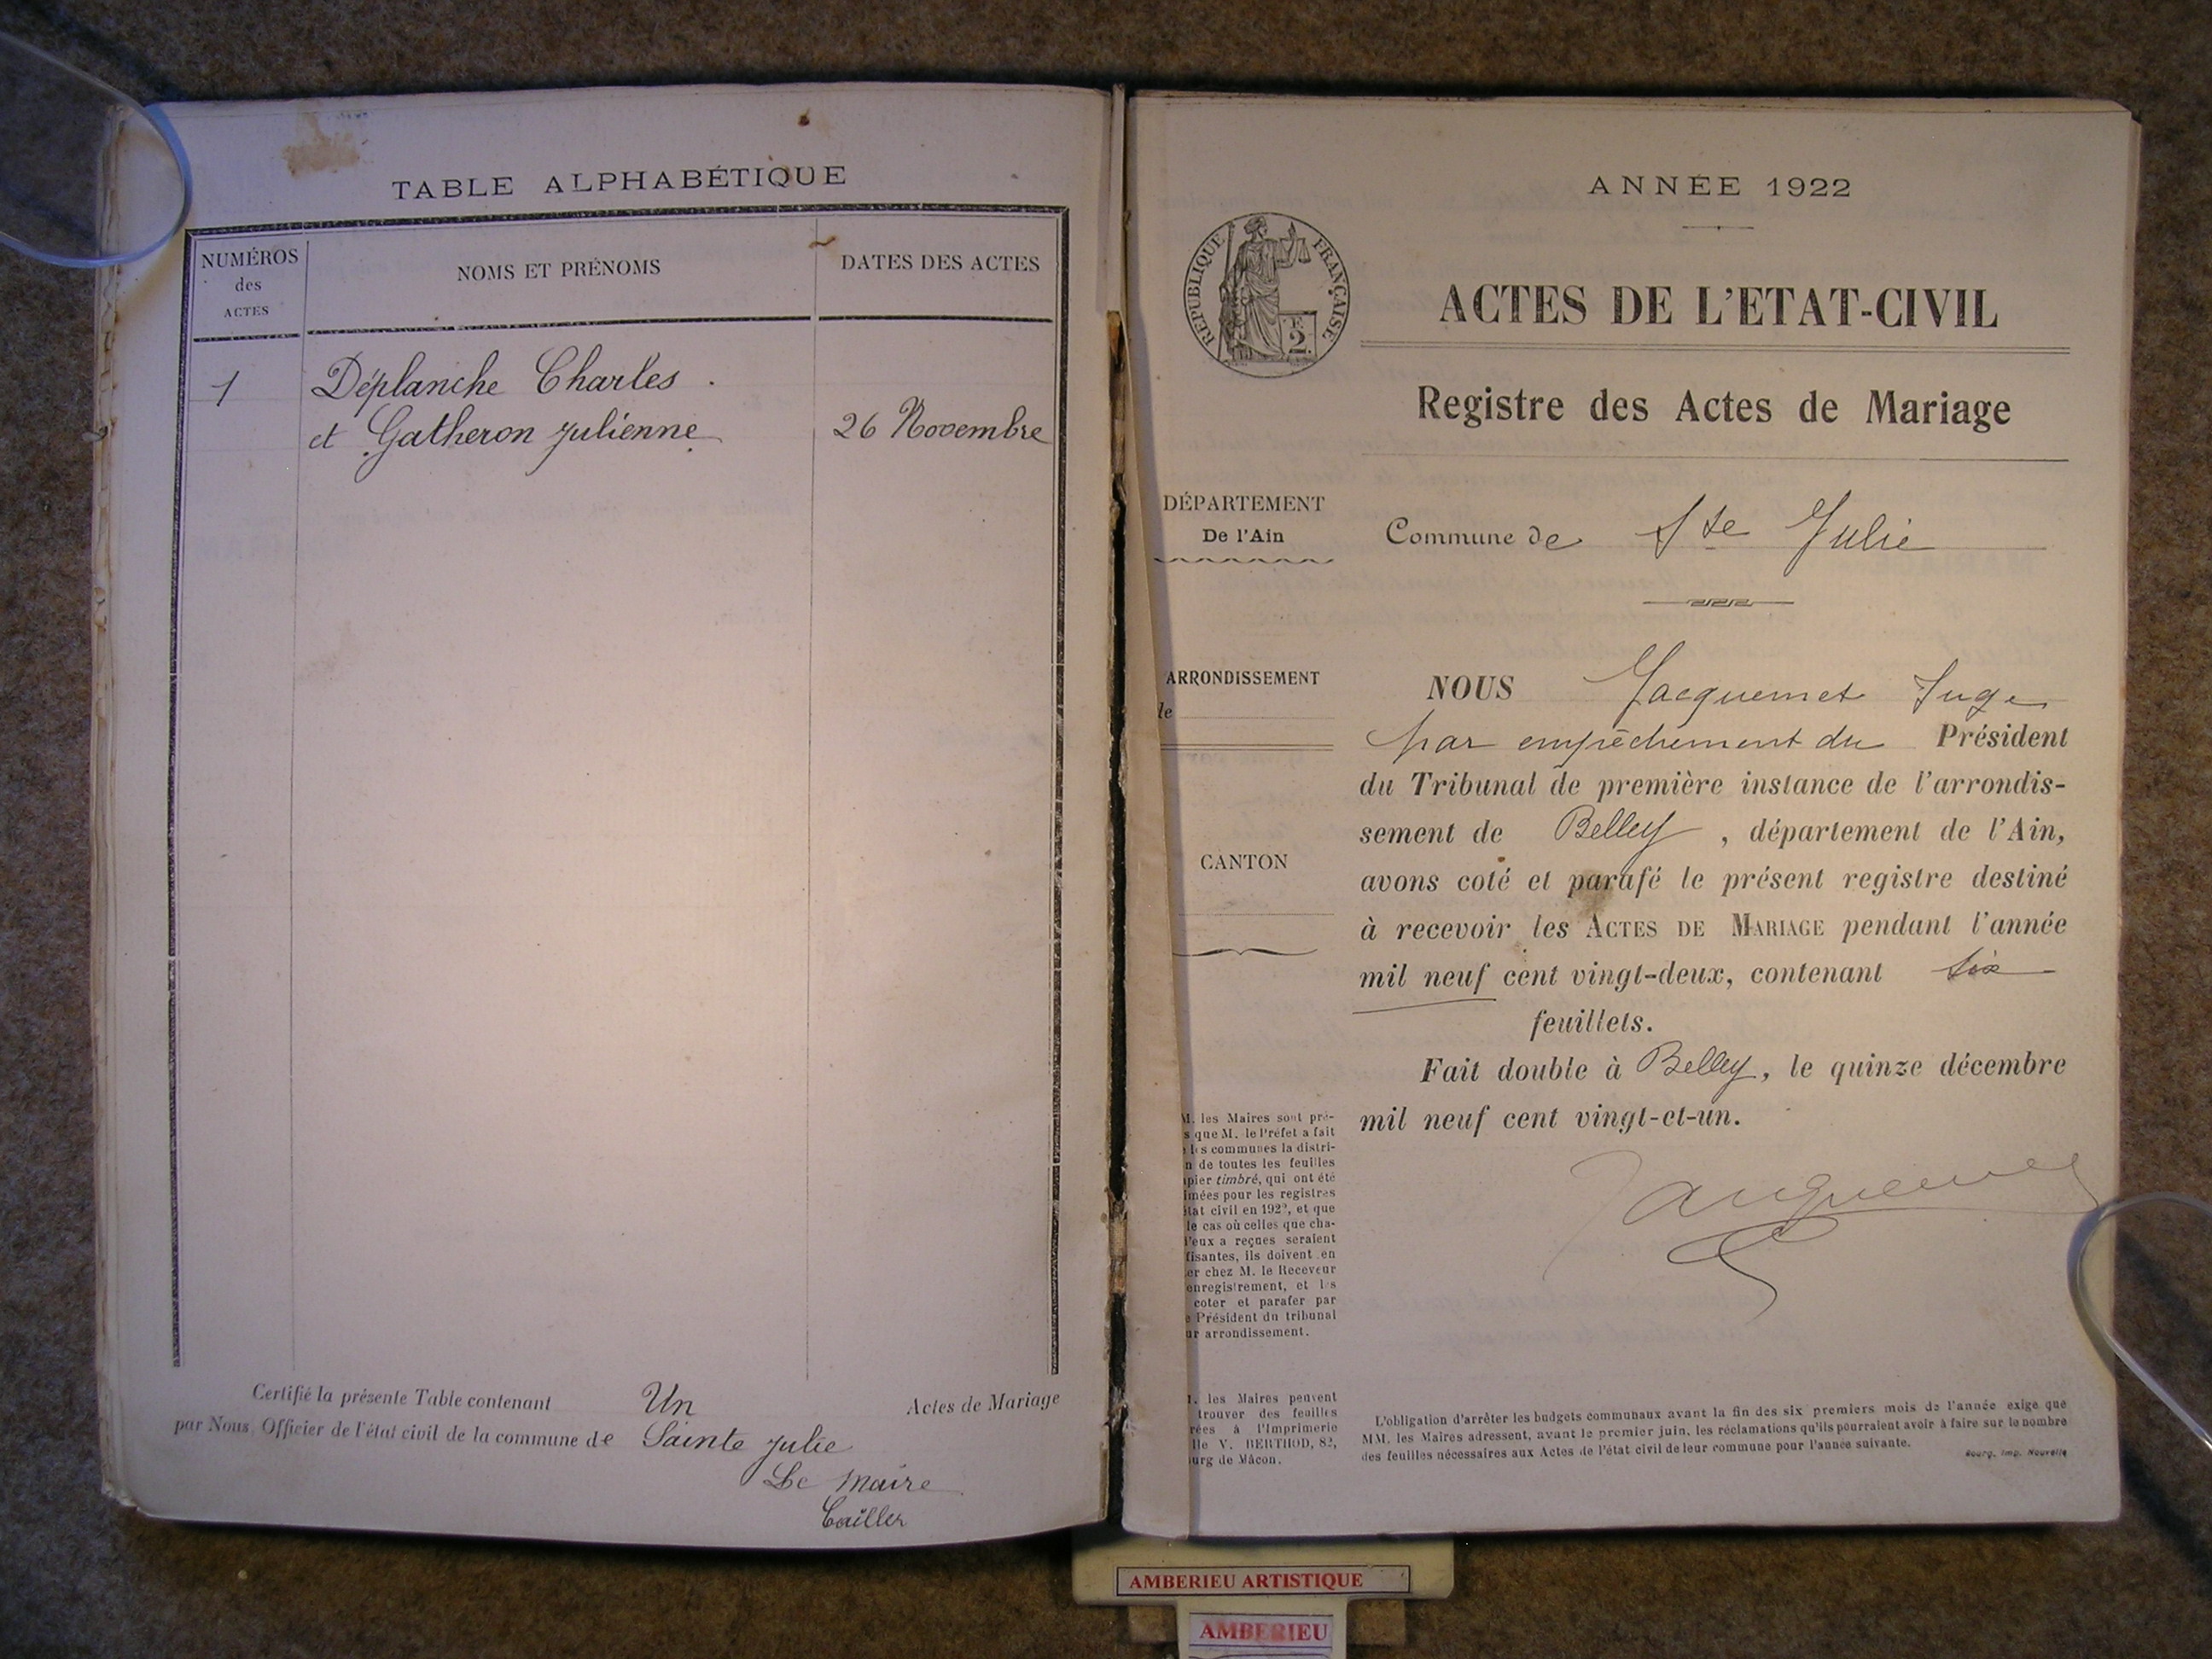 TABLE ALPHABÉTIQUE
NUMÉROS
des
ACTES
NOMS ET PRÉNOMS
DATES DES ACTES
1
Déplanche Charles
et Gatheron Julienne
26 Novembre
Certifié la présente Table contenant Un Actes de Mariage
par Nous Officier de l'état civil de la commune de Sainte Julie
Le Maire
ANNÉE 1922
RÉPUBLIQUE FRANÇAISE
2F
ACTES DE L'ETAT-CIVIL
Registre des Actes de Mariage
DÉPARTEMENT
De l'Ain
Commune de Ste Julie
ARRONDISSEMENT
de
CANTON
NOUS Jacquemet Juge
par empêchement du Président
du Tribunal de première instance de l'arrondis-
sement de Belley, département de l'Ain,
avons coté et parafé le présent registre destiné
à recevoir les ACTES DE MARIAGE pendant l'année
mil neuf cent vingt-deux, contenant six
feuillets.
Fait double à Belley, le quinze décembre
mil neuf cent vingt-et-un.
Jacquemet
M. les Maires sont pré-
s que M. le Préfet a fait
les communes la distri-
n de toutes les feuilles
pier timbré, qui ont été
imées pour les registres
état civil en 1922, et que
le cas où celles que cha-
d'eux a reçues seraient
fisantes, ils doivent en
er chez M. le Receveur
enregistrement, et les
coter et parafer par
e Président du tribunal
ur arrondissement.
M. les Maires peuvent
trouver des feuilles
rées à l'Imprimerie
lle V. BERTHOD, 82,
urg de Mâcon.
L'obligation d'arrêter les budgets communaux avant la fin des six premiers mois de l'année exige que
MM. les Maires adressent, avant le premier juin, les réclamations qu'ils pourraient avoir à faire sur le nombre
des feuilles nécessaires aux Actes de l'état civil de leur commune pour l'année suivante.
Bourg, Imp. Nouvelle
AMBERIEU ARTISTIQUE
AMBERIEU